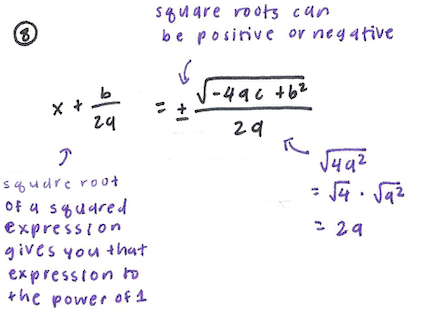 ⑧
square roots can
be positive or negative
x + b/2a = ± √-4ac + b²/2a
square root
of a squared
expression
gives you that
expression to
the power of 1
√4a²
= √4 · √a²
= 2a